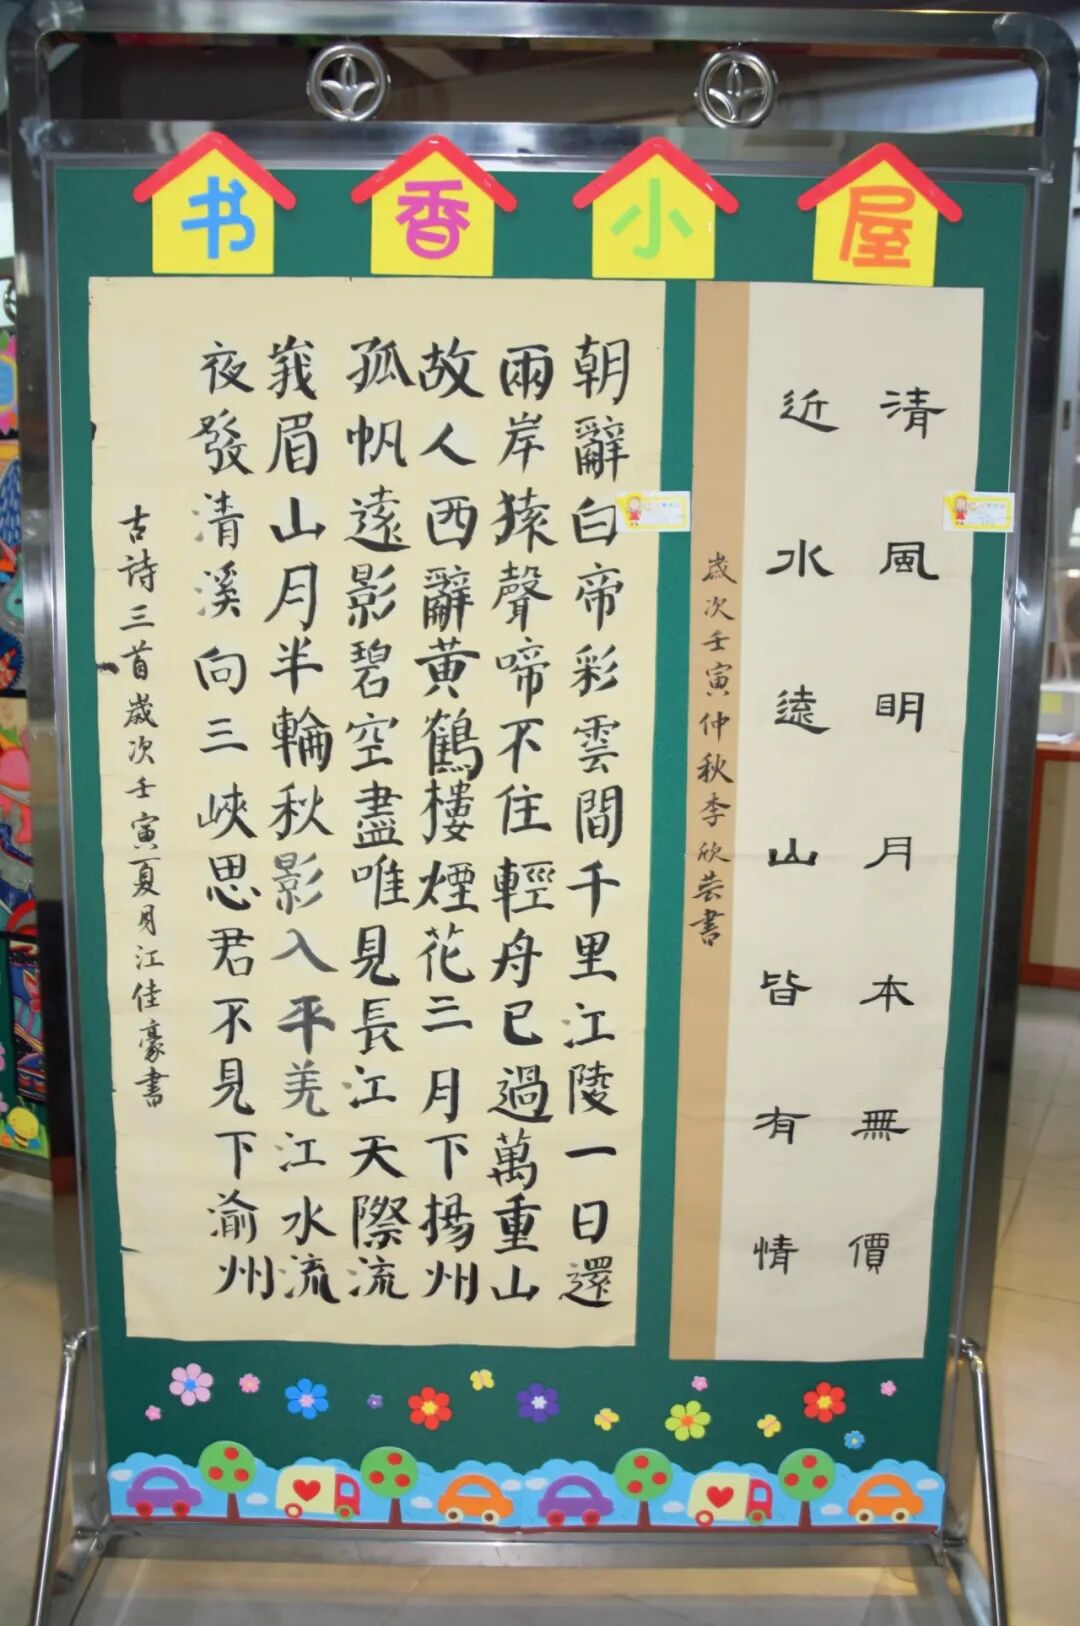 书香小屋
清風眀月本無價
近水遠山皆有情
歲次壬寅仲秋李欣芸書
朝辭白帝彩雲間千里江陵一日還
兩岸猿聲啼不住輕舟已過萬重山
故人西辭黃鶴樓煙花三月下揚州
孤帆遠影碧空盡唯見長江天際流
峩眉山月半輪秋影入平羌江水流
夜發清溪向三峽思君不見下渝州
古詩三首歲次壬寅夏月江佳豪書